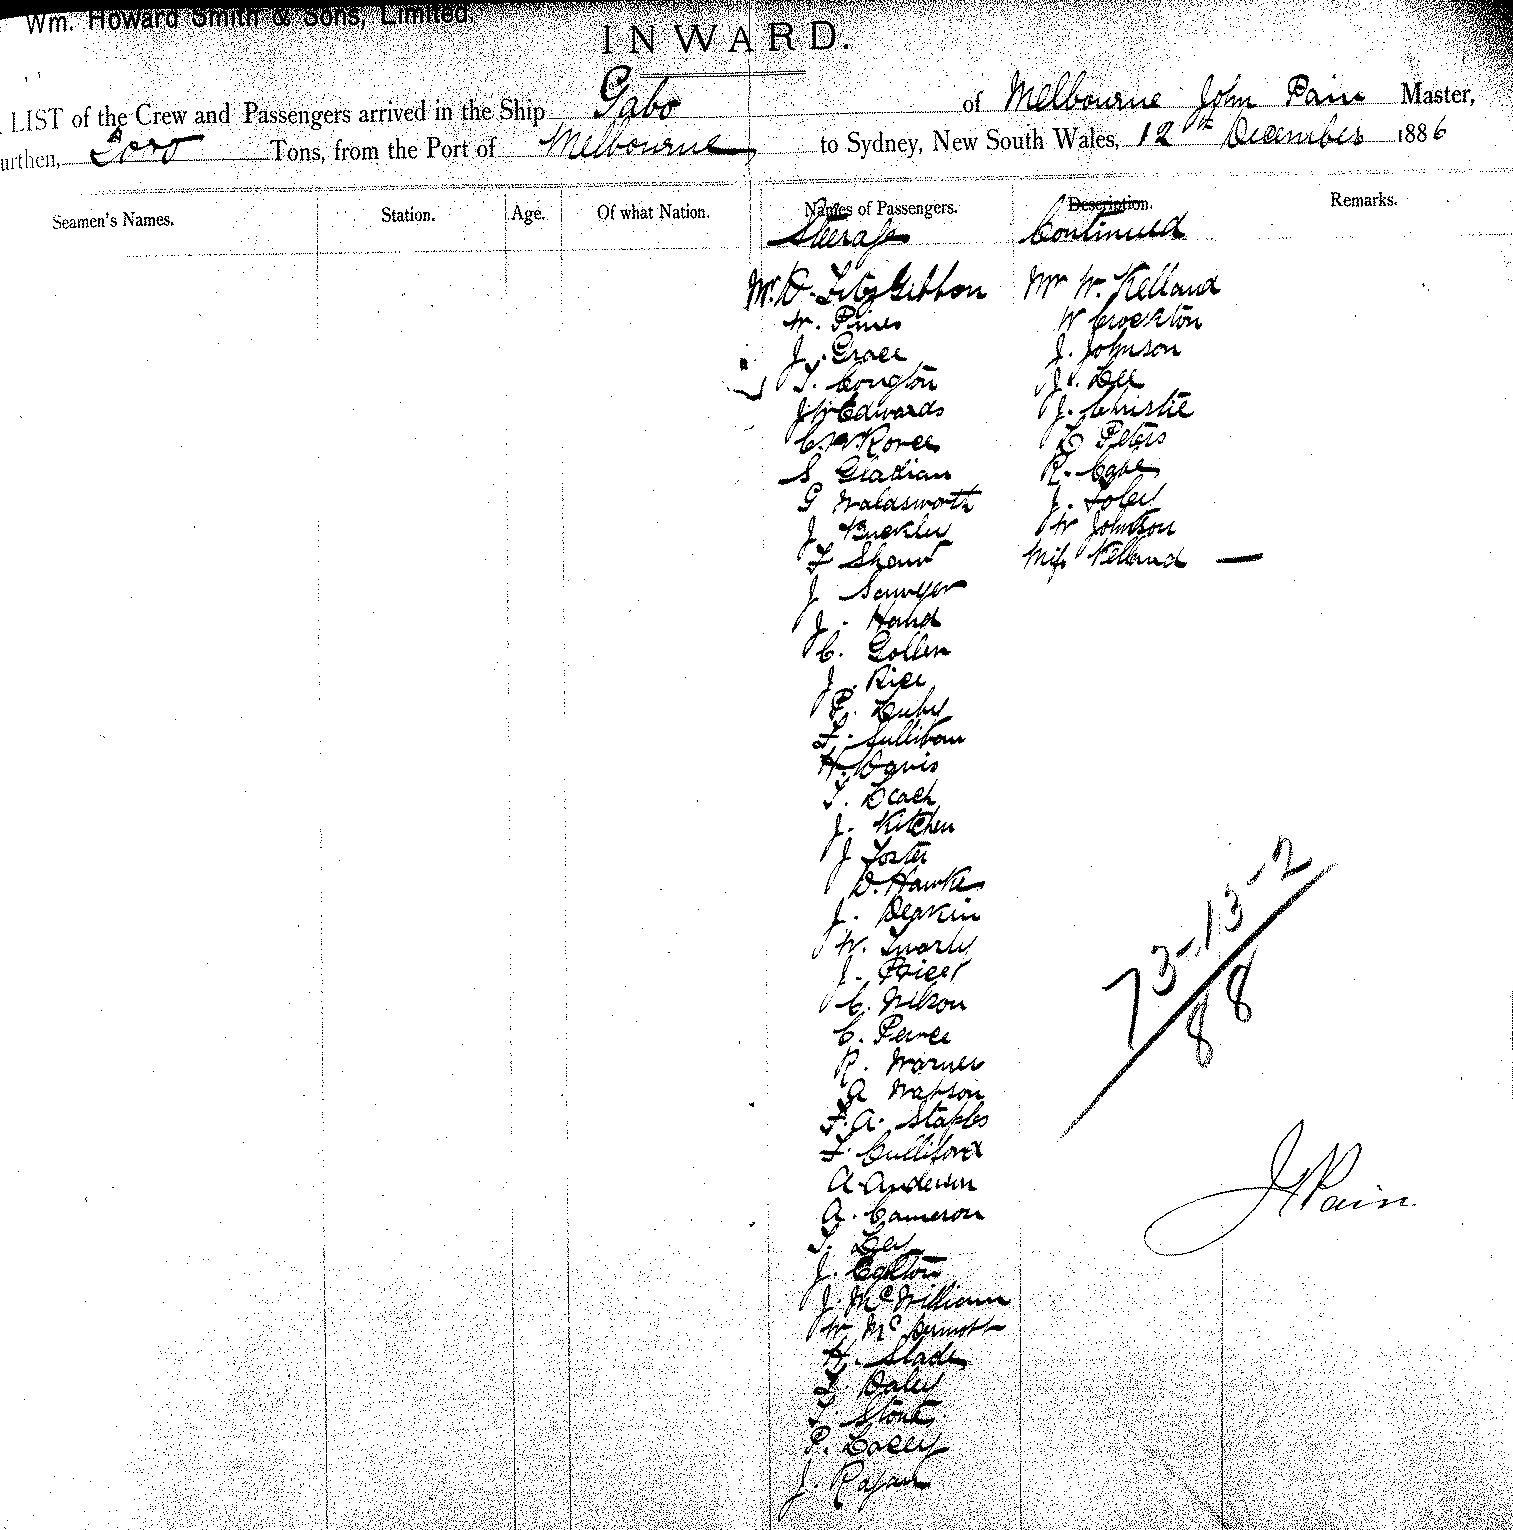 Wm. Howard Smith & Sons, Limited.
INWARD.
LIST of the Crew and Passengers arrived in the Ship Gabo of Melbourne John Pain Master,
urthen, Tons, from the Port of Melbourne to Sydney, New South Wales, 12th December 1886
Seamen's Names. Station. Age. Of what Nation. Names of Passengers. Description. Remarks.
Steerage Continued
Mr D. FitzGibbon
W. Pines
J. Grace
T. Congton
J W Edwards
S Gladian
G Waldsworth
J Buckley
F Shaw
J Sawyer
J. Hand
C. Gollen
J. Rice
P. Luby
F. Sullivan
H. Davis
T. Leach
J. Kitchen
J Foster
D. Hawke
J. Deakin
W.
J. Price
C. Nelson
C. Peirce
R. Warner
A Watson
F. A. Staples
F. Gulliford
A. Anderson
A. Cameron
T. Ley
J. Eglton
J. McWilliam
W McDermott
H. Slade
T. Daley
T. Stout
P. Lacey
J. Ragan
Mr W. Kelland
W Crockton
J. Johnson
J. Lee
J. Christie
C Peters
R. Cave
J. Foley
W Johnson
Miss Kelland —
73-13-2
88
J Pain